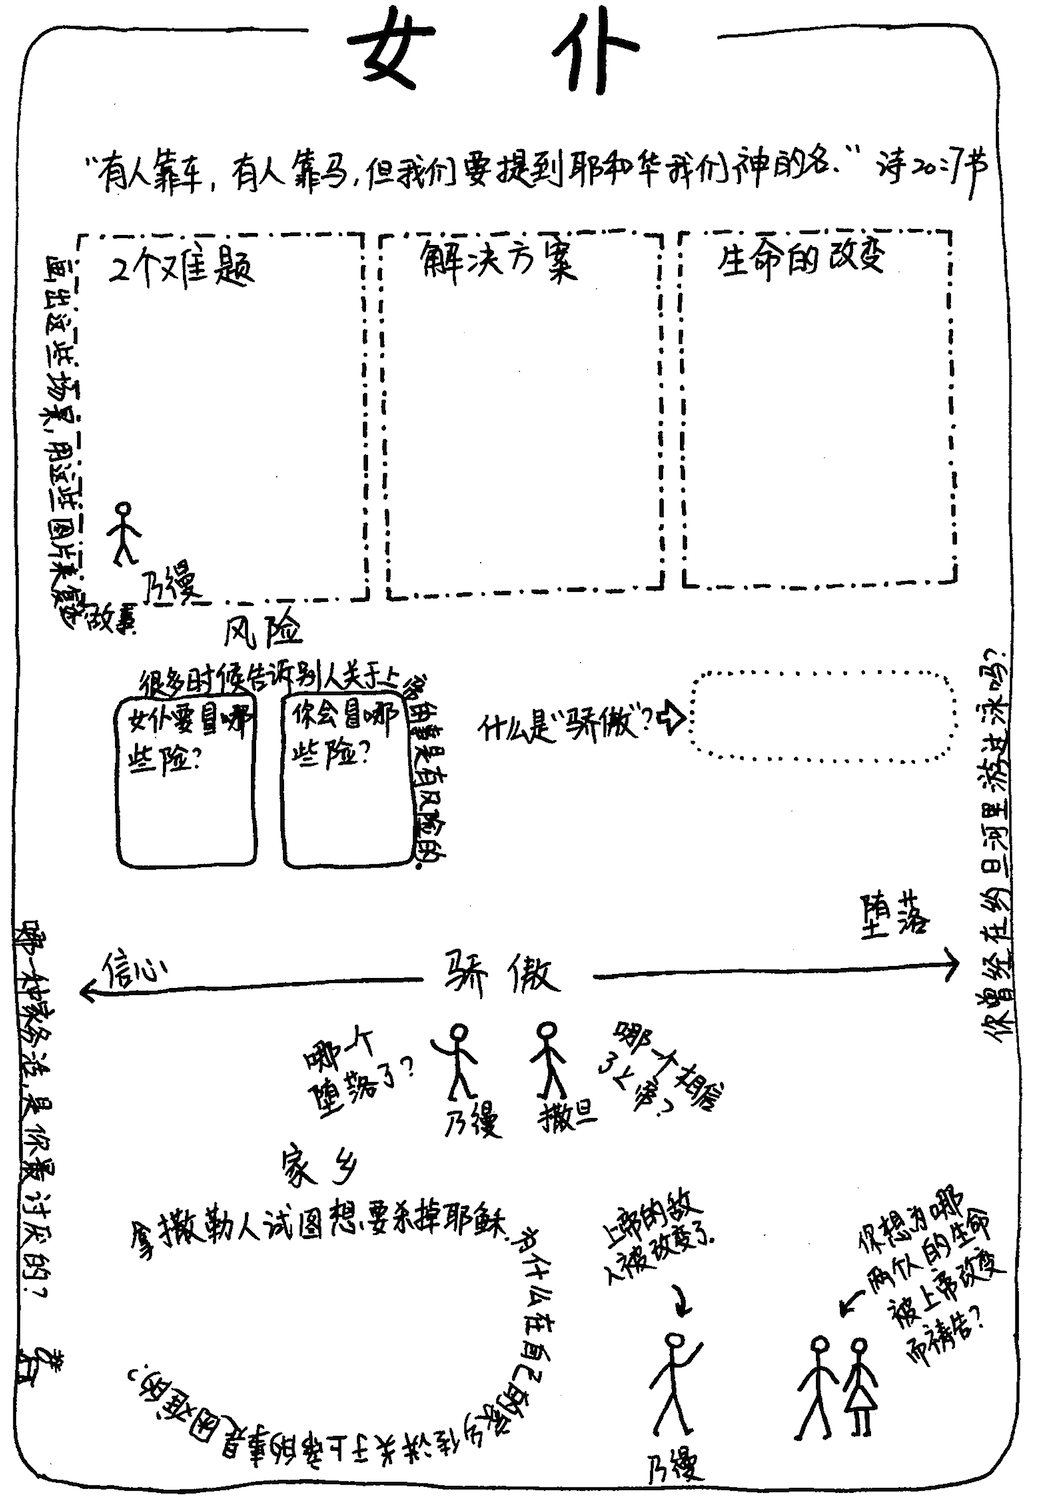 女 仆
"有人靠车，有人靠马，但我们要提到耶和华我们神的名." 诗20:7节
画出这些场景，用这些图片来复述
故事
2个难题
乃缦
解决方案
生命的改变
风险
很多时候告诉别人关于上帝的事是有风险的.
女仆要冒哪
些险？
你会冒哪
些险？
什么是"骄傲"？
你曾经在约旦河里游过泳吗？
堕落
信心
骄傲
哪一种家务活，是你最讨厌的？
哪个
堕落了？
乃缦
撒旦
哪一个相信
了上帝？
家乡
拿撒勒人试图想要杀掉耶稣.
为什么在自己的家乡传讲关于上帝的事是困难的？
上帝的敌
人被改变了.
乃缦
你想为哪
两个人的生命
被上帝改变
而祷告？